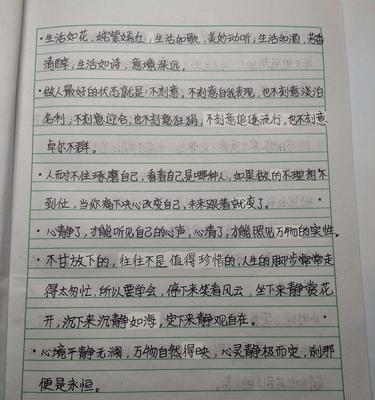 ·生活如花，姹紫嫣红；生活如歌，美妙动听；生活如酒，芳香
清醇；生活如诗，意境深远。
·做人最好的状态就是：不刻意。不刻意自我表现，也不刻意淡泊
名利，不刻意迎合，也不刻意狂狷，不刻意追逐流行，也不刻意
卓尔不群。
·人时不住琢磨自己，看看自己是哪种人，如果做的不理想不
到位，当你痛下决心改变自己，未来跟着就变了。
·心静了，才能听见自己的心声，心清了，才能照见万物的实性。
·不甘放下的，往往不是值得珍惜的，人生的脚步常常走
得太匆忙，所以要学会，停下来笑看风云，坐下来静赏花
开，沉下来沉静如海，定下来静观自在。
·心境平静无澜，万物自然得映，心灵静极而定，刹那
便是永恒。